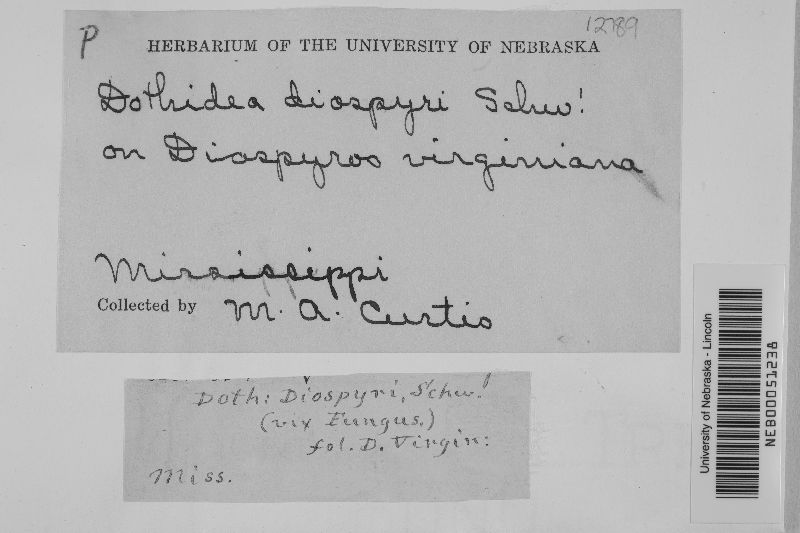 P
12789
HERBARIUM OF THE UNIVERSITY OF NEBRASKA
Dothidea diospyri Schw!
on Diospyros virginiana
Mississippi
Collected by M. A. Curtis
Doth: Diospyri, Schw!
(vix Fungus.)
fol. D. Virgin:
Miss.
University of Nebraska - Lincoln
NEB00051238